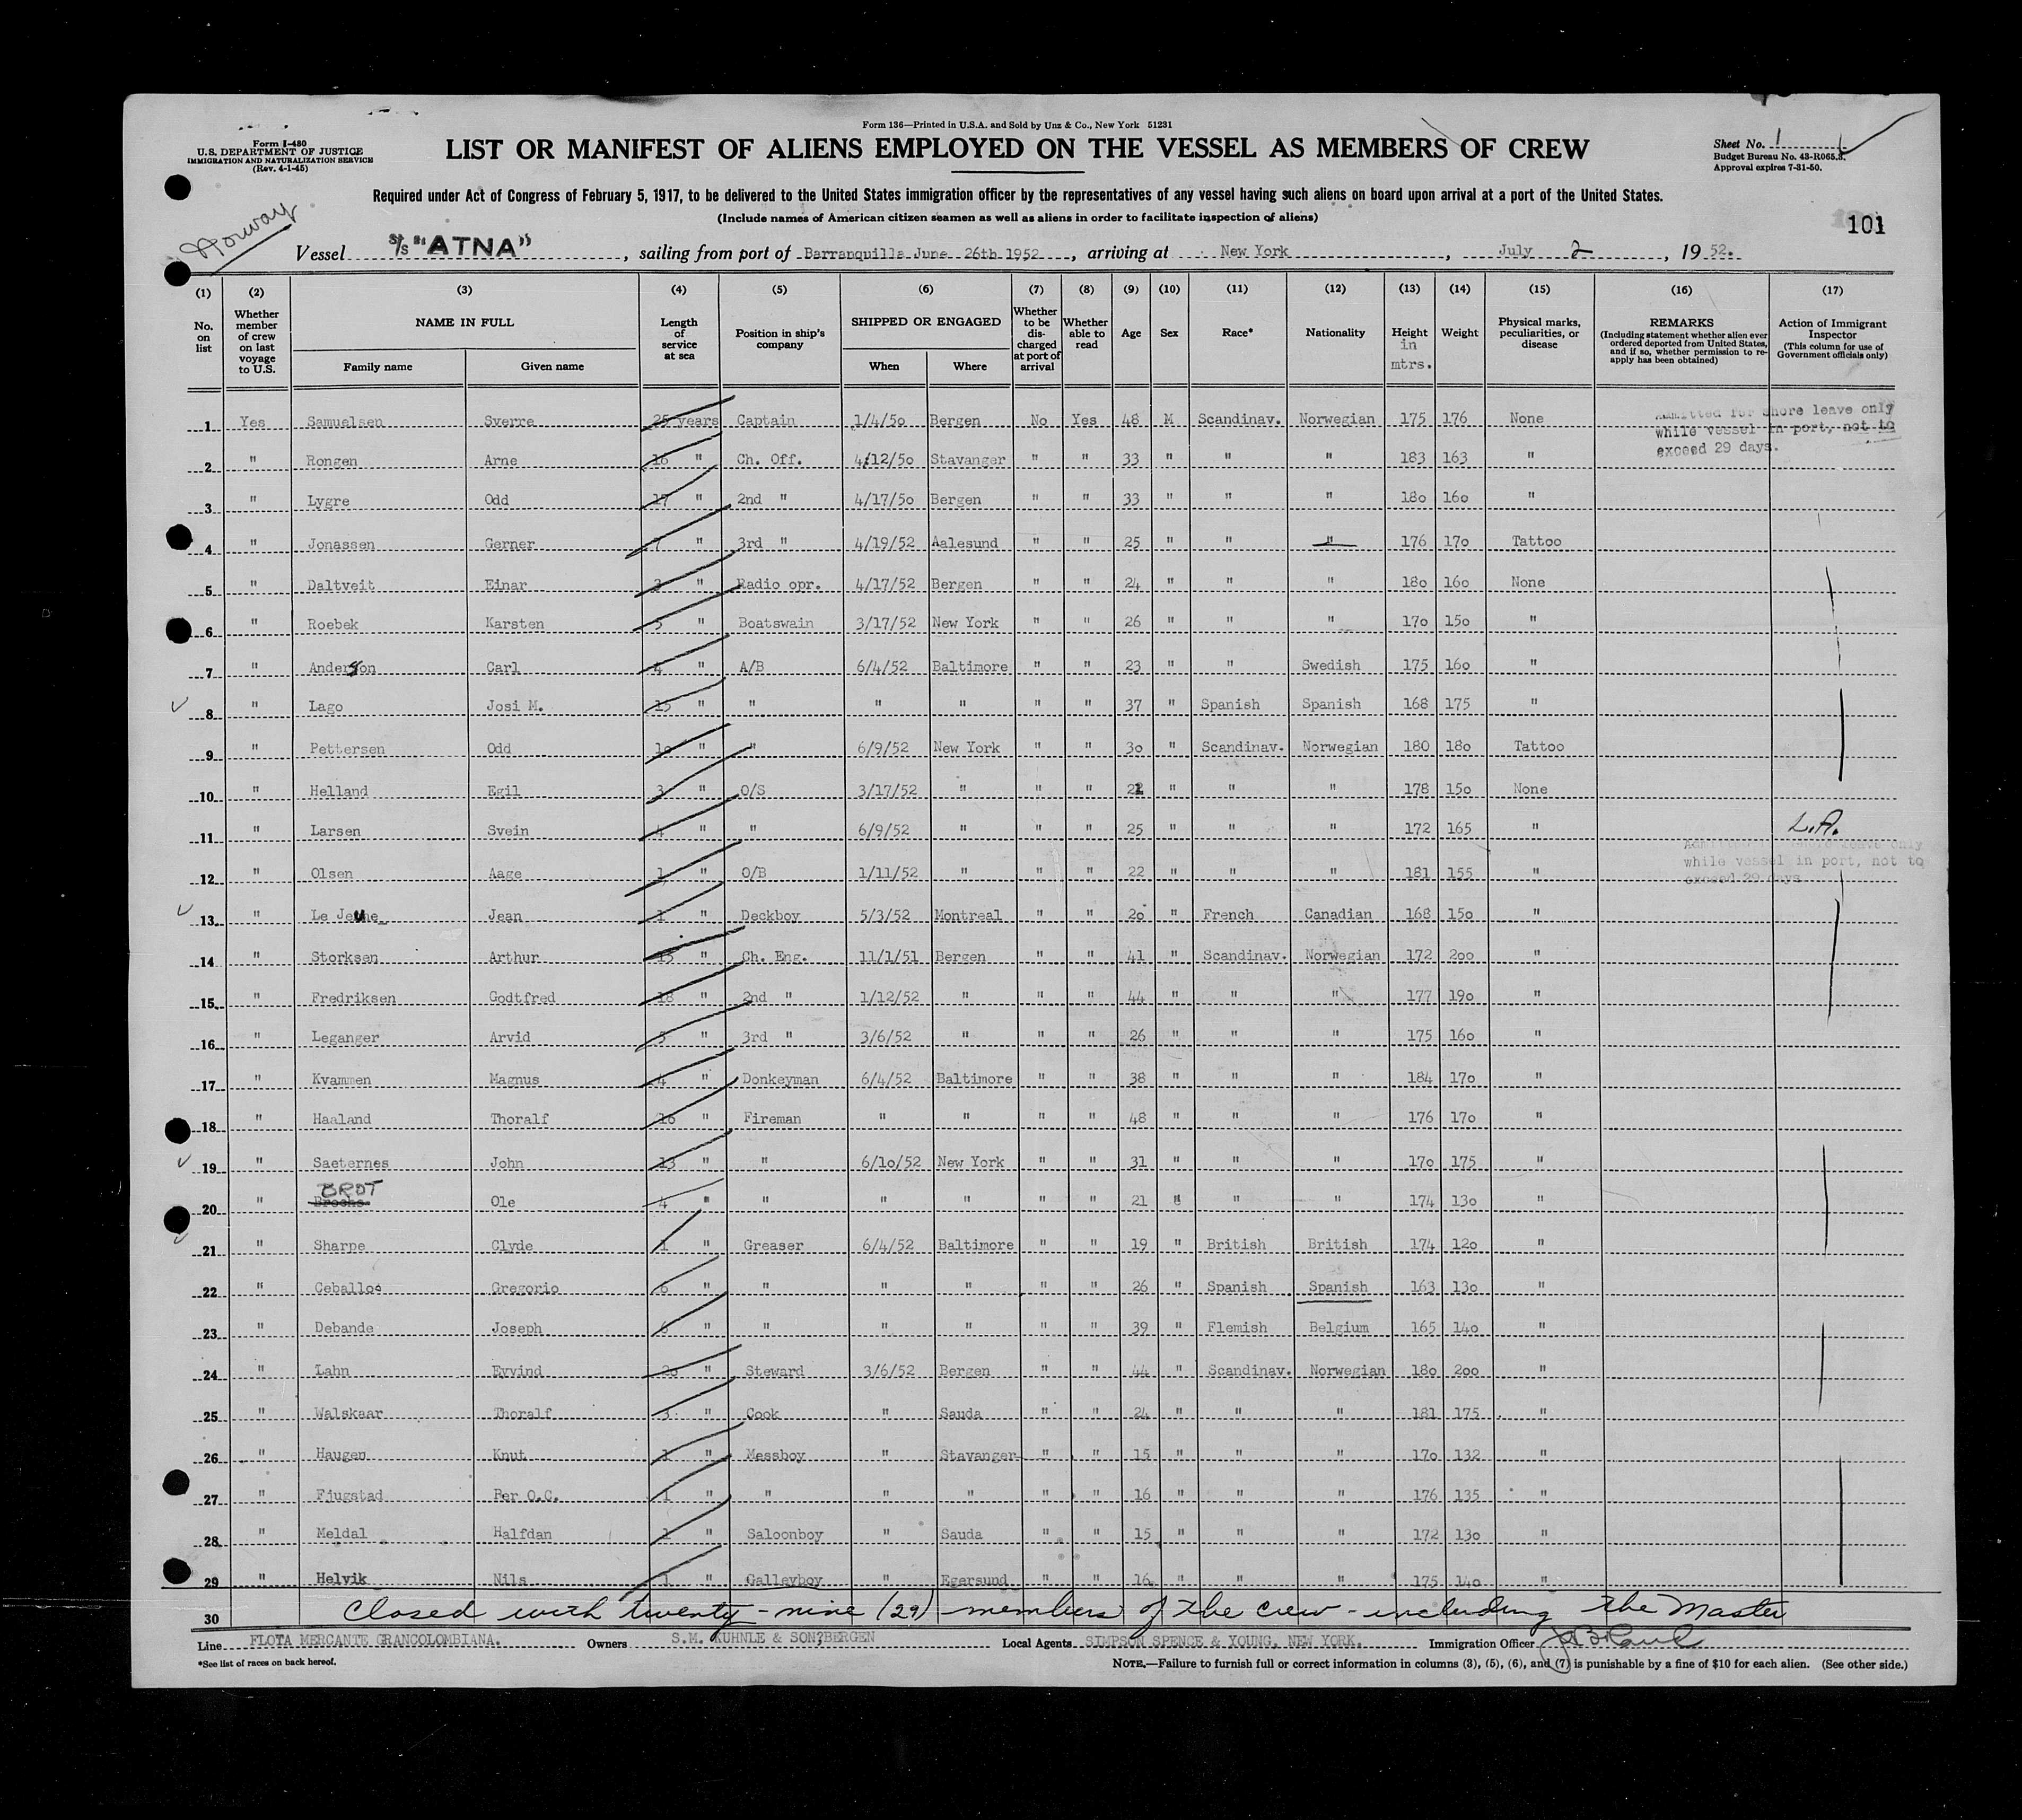 Form 136—Printed in U.S.A. and Sold by Unz & Co., New York 51231
Form I-480
U.S. DEPARTMENT OF JUSTICE
IMMIGRATION AND NATURALIZATION SERVICE
(Rev. 4-1-45)
LIST OR MANIFEST OF ALIENS EMPLOYED ON THE VESSEL AS MEMBERS OF CREW
Sheet No. 1
Budget Bureau No. 43-R065.3.
Approval expires 7-31-50.
Required under Act of Congress of February 5, 1917, to be delivered to the United States immigration officer by the representatives of any vessel having such aliens on board upon arrival at a port of the United States.
(Include names of American citizen seamen as well as aliens in order to facilitate inspection of aliens)
Norway
101
Vessel S/S "ATNA", sailing from port of Barranquilla June 26th 1952, arriving at New York, July 2, 19 52.
(1) (2) (3) (4) (5) (6) (7) (8) (9) (10) (11) (12) (13) (14) (15) (16) (17)
No. on list
Whether member of crew on last voyage to U.S.
NAME IN FULL
Family name Given name
Length of service at sea
Position in ship's company
SHIPPED OR ENGAGED
When Where
Whether to be discharged at port of arrival
Whether able to read
Age
Sex
Race*
Nationality
Height in mtrs.
Weight
Physical marks, peculiarities, or disease
REMARKS
(Including statement whether alien ever ordered deported from United States, and if so, whether permission to reapply has been obtained)
Action of Immigrant Inspector
(This column for use of Government officials only)
1 Yes Samuelsen Sverre 25 years Captain 1/4/50 Bergen No Yes 48 M Scandinav. Norwegian 175 176 None
Admitted for shore leave only
while vessel in port, not to
exceed 29 days.
2 " Rongen Arne 16 " Ch. Off. 4/12/50 Stavanger " " 33 " " " 183 163 "
3 " Lygre Odd 17 " 2nd " 4/17/50 Bergen " " 33 " " " 180 160 "
4 " Jonassen Gerner 7 " 3rd " 4/19/52 Aalesund " " 25 " " " 176 170 Tattoo
5 " Daltveit Einar 3 " Radio opr. 4/17/52 Bergen " " 24 " " " 180 160 None
6 " Roebek Karsten 5 " Boatswain 3/17/52 New York " " 26 " " " 170 150 "
7 " Anderson Carl 4 " A/B 6/4/52 Baltimore " " 23 " " Swedish 175 160 "
8 " Lago Josi M. 15 " " " " " " 37 " Spanish Spanish 168 175 "
9 " Pettersen Odd 10 " " 6/9/52 New York " " 30 " Scandinav. Norwegian 180 180 Tattoo
10 " Helland Egil 3 " O/S 3/17/52 " " " 21 " " " 178 150 None
11 " Larsen Svein 4 " " 6/9/52 " " " 25 " " " 172 165 " L.A.
Admitted for shore leave only
while vessel in port, not to
exceed 29 days
12 " Olsen Aage 1 " O/B 1/11/52 " " " 22 " " " 181 155 "
13 " Le Jeune Jean 1 " Deckboy 5/3/52 Montreal " " 20 " French Canadian 168 150 "
14 " Storksen Arthur 15 " Ch. Eng. 11/1/51 Bergen " " 41 " Scandinav. Norwegian 172 200 "
15 " Fredriksen Godtfred 18 " 2nd " 1/12/52 " " " 44 " " " 177 190 "
16 " Leganger Arvid 5 " 3rd " 3/6/52 " " " 26 " " " 175 160 "
17 " Kvammen Magnus 4 " Donkeyman 6/4/52 Baltimore " " 38 " " " 184 170 "
18 " Haaland Thoralf 16 " Fireman " " " " 48 " " " 176 170 "
19 " Saeternes John 13 " " 6/10/52 New York " " 31 " " " 170 175 "
BROT
20 " Ole 4 " " " " " " 21 " " " 174 130 "
21 " Sharpe Clyde 1 " Greaser 6/4/52 Baltimore " " 19 " British British 174 120 "
22 " Ceballos Gregorio 6 " " " " " " 26 " Spanish Spanish 163 130 "
23 " Debande Joseph 6 " " " " " " 39 " Flemish Belgium 165 140 "
24 " Lahn Eyvind 20 " Steward 3/6/52 Bergen " " 44 " Scandinav. Norwegian 180 200 "
25 " Walskaar Thoralf 3 " Cook " Sauda " " 24 " " " 181 175 "
26 " Haugen Knut 1 " Messboy " Stavanger " " 15 " " " 170 132 "
27 " Fjugstad Per O.C. 1 " " " " " " 16 " " " 176 135 "
28 " Meldal Halfdan 1 " Saloonboy " Sauda " " 15 " " " 172 130 "
29 " Helvik Nils 1 " Galleyboy " Egersund " " 16 " " " 175 140 "
30 Closed with twenty-nine (29) members of the crew - including the Master
Line FLOTA MERCANTE GRANCOLOMBIANA. Owners S.M. KUHNLE & SON, BERGEN Local Agents SIMPSON SPENCE & YOUNG, NEW YORK. Immigration Officer
*See list of races on back hereof.
NOTE.—Failure to furnish full or correct information in columns (3), (5), (6), and (7) is punishable by a fine of $10 for each alien. (See other side.)